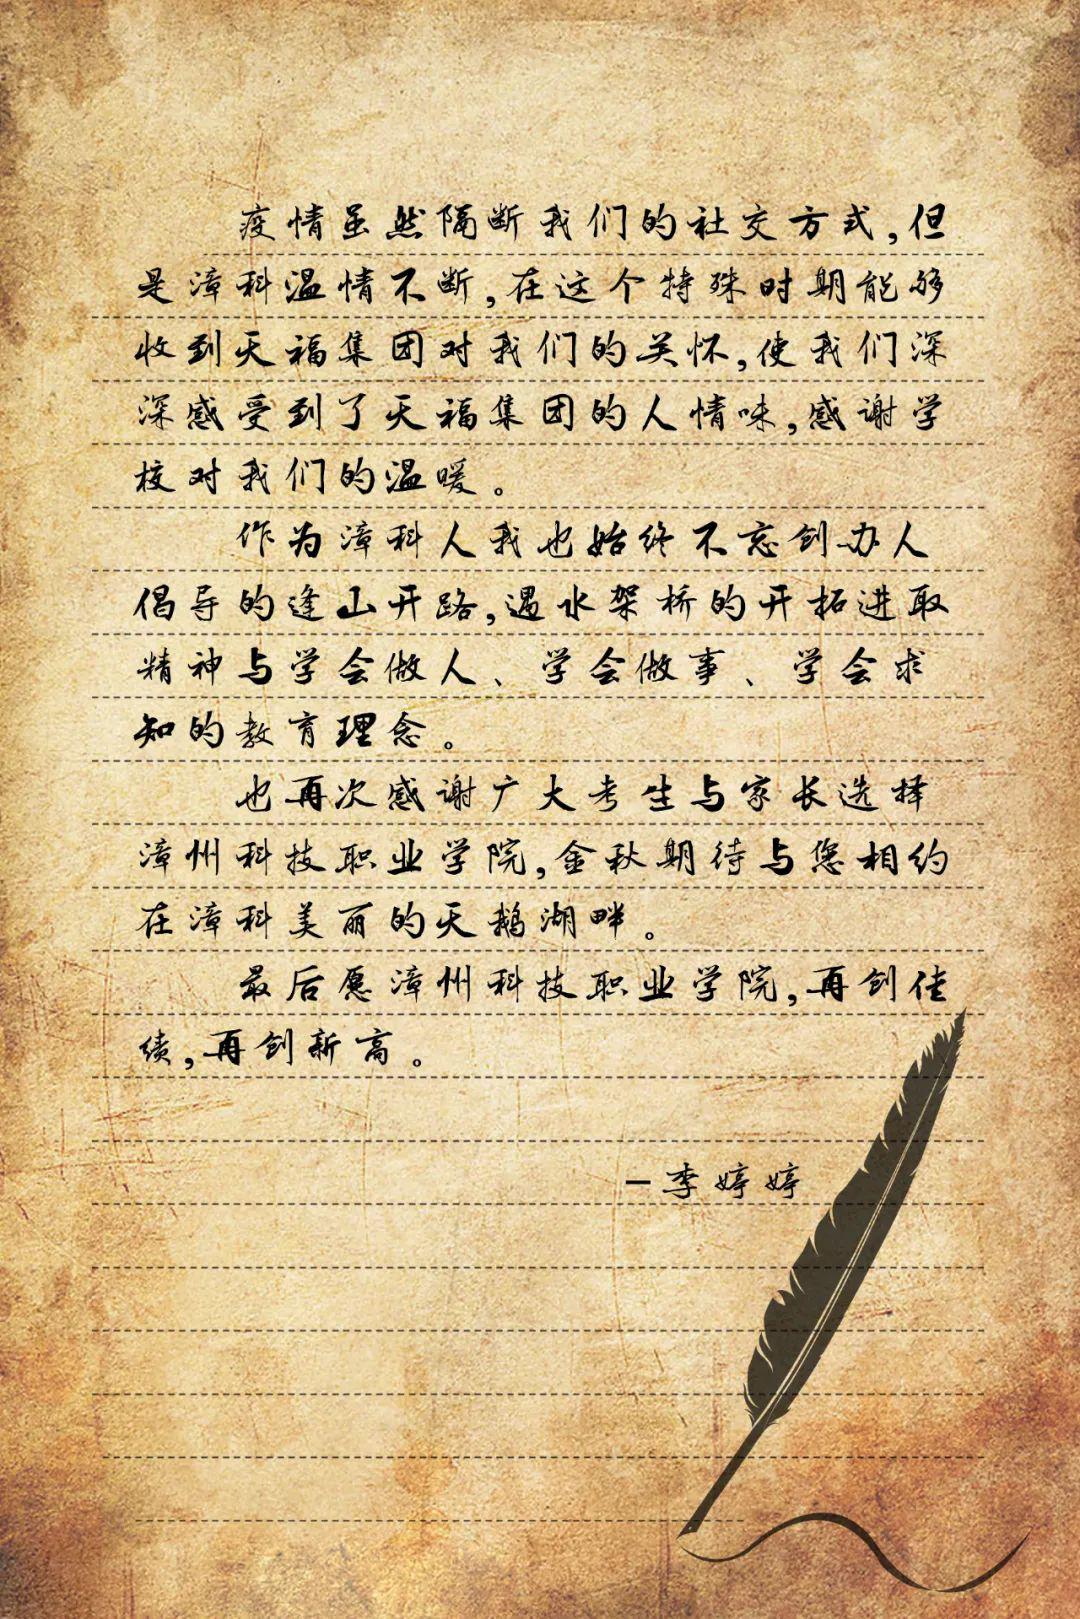 疫情虽然隔断我们的社交方式,但
是漳科温情不断,在这个特殊时期能够
收到天福集团对我们的关怀,使我们深
深感受到了天福集团的人情味,感谢学
校对我们的温暖。
作为漳科人我也始终不忘创办人
倡导的逢山开路,遇水架桥的开拓进取
精神与学会做人、学会做事、学会求
知的教育理念。
也再次感谢广大考生与家长选择
漳州科技职业学院,金秋期待与您相约
在漳科美丽的天鹅湖畔。
最后愿漳州科技职业学院,再创佳
绩,再创新高。
—李婷婷